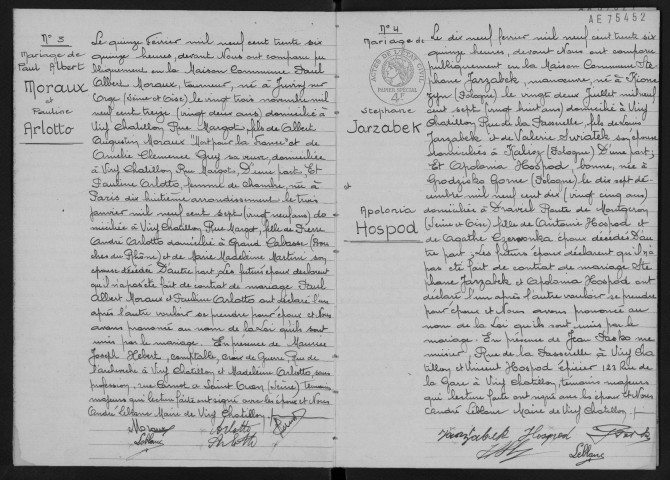 N° 3
Mariage de
Paul Albert
Moraux
et
Pauline
Arlotto
Le quinze Fevrier mil neuf cent trente six
quinze heures, devant Nous ont comparu pu
bliquement en la Maison Commune Paul
Albert Moraux, tourneur, né à Juvisy sur
Orge (Seine et Oise) le vingt trois novembre mil
neuf cent treize (vingt deux ans) domicilié à
Viry Chatillon Rue Margot, fils de Albert
Augustin Moraux "Mort pour la France" et de
Amélie Clemence Guy sa veuve, domiciliée
à Viry Chatillon Rue Margot, D'une part, Et
Pauline Arlotto, femme de chambre, née à
Paris dix huitième arrondissement le trois
janvier mil neuf cent sept (vingt neuf ans) do
miciliée à Viry Chatillon, Rue Margot, fille de Pierre
André Arlotto domicilié à Grand Calasse (Bou
ches du Rhône) et de Marie Madeleine Martini son
épouse décédée D'autre part. Les futurs époux déclarent
qu'il n'a pas été fait de contrat de mariage Paul
Albert Moraux et Pauline Arlotto ont déclaré l'un
après l'autre vouloir se prendre pour époux et Nous
avons prononcé au nom de la Loi qu'ils sont
unis par le mariage. En présence de Maurice
Joseph Hebert, comptable, Croix de Guerre, Rue de
à Viry Chatillon et Madeleine Arlotto, sans
profession, rue Carnot à Saint Ouen (Seine) témoins
majeurs qui lecture faite ont signé avec les époux et Nous
André Leblanc Maire de Viry Chatillon./.
Moraux Arlotto
Leblanc Arlotto
AE 75452
N° 4
Mariage de
Stephane
Jarzabek
et
Apolonia
Hospod
ACTES DE L'ÉTAT CIVIL
PAPIER SPÉCIAL
4F
Le dix neuf fevrier mil neuf cent trente six
quinze heures, devant Nous ont comparu
publiquement en la Maison Commune Ste
phane Jarzabek, manoeuvre, né à
(Pologne) le vingt deux Juillet mil neuf
cent sept (vingt huit ans) domicilié à Viry
Chatillon Rue de la
Jarzabek et de Valerie Swiatek son épouse
domiciliés à Kalisz (Pologne) D'une part;
Et Apolonia Hospod, bonne, née à
Grodzisko Gorne (Pologne) le dix sept dé
cembre mil neuf cent dix (vingt cinq ans)
domiciliée à Draveil Route de Montgeron
(Seine et Oise) fille de Antoine Hospod et
de Agathe époux décédés D'au
tre part. Les futurs époux déclarent qu'il n'a
pas été fait de contrat de mariage Ste
phane Jarzabek et Apolonia Hospod ont
déclaré l'un après l'autre vouloir se prendre
pour époux et Nous avons prononcé au
nom de la Loi qu'ils sont unis par le
mariage. En présence de Jean me
nuisier, Rue de la à Viry Cha
tillon et Vincent Hospod épicier 121 Rue de
la Gare à Viry Chatillon, témoins majeurs
qui lecture faite ont signé avec les époux et Nous
André Leblanc Maire de Viry Chatillon./.
Jarzabek Hospod
Leblanc